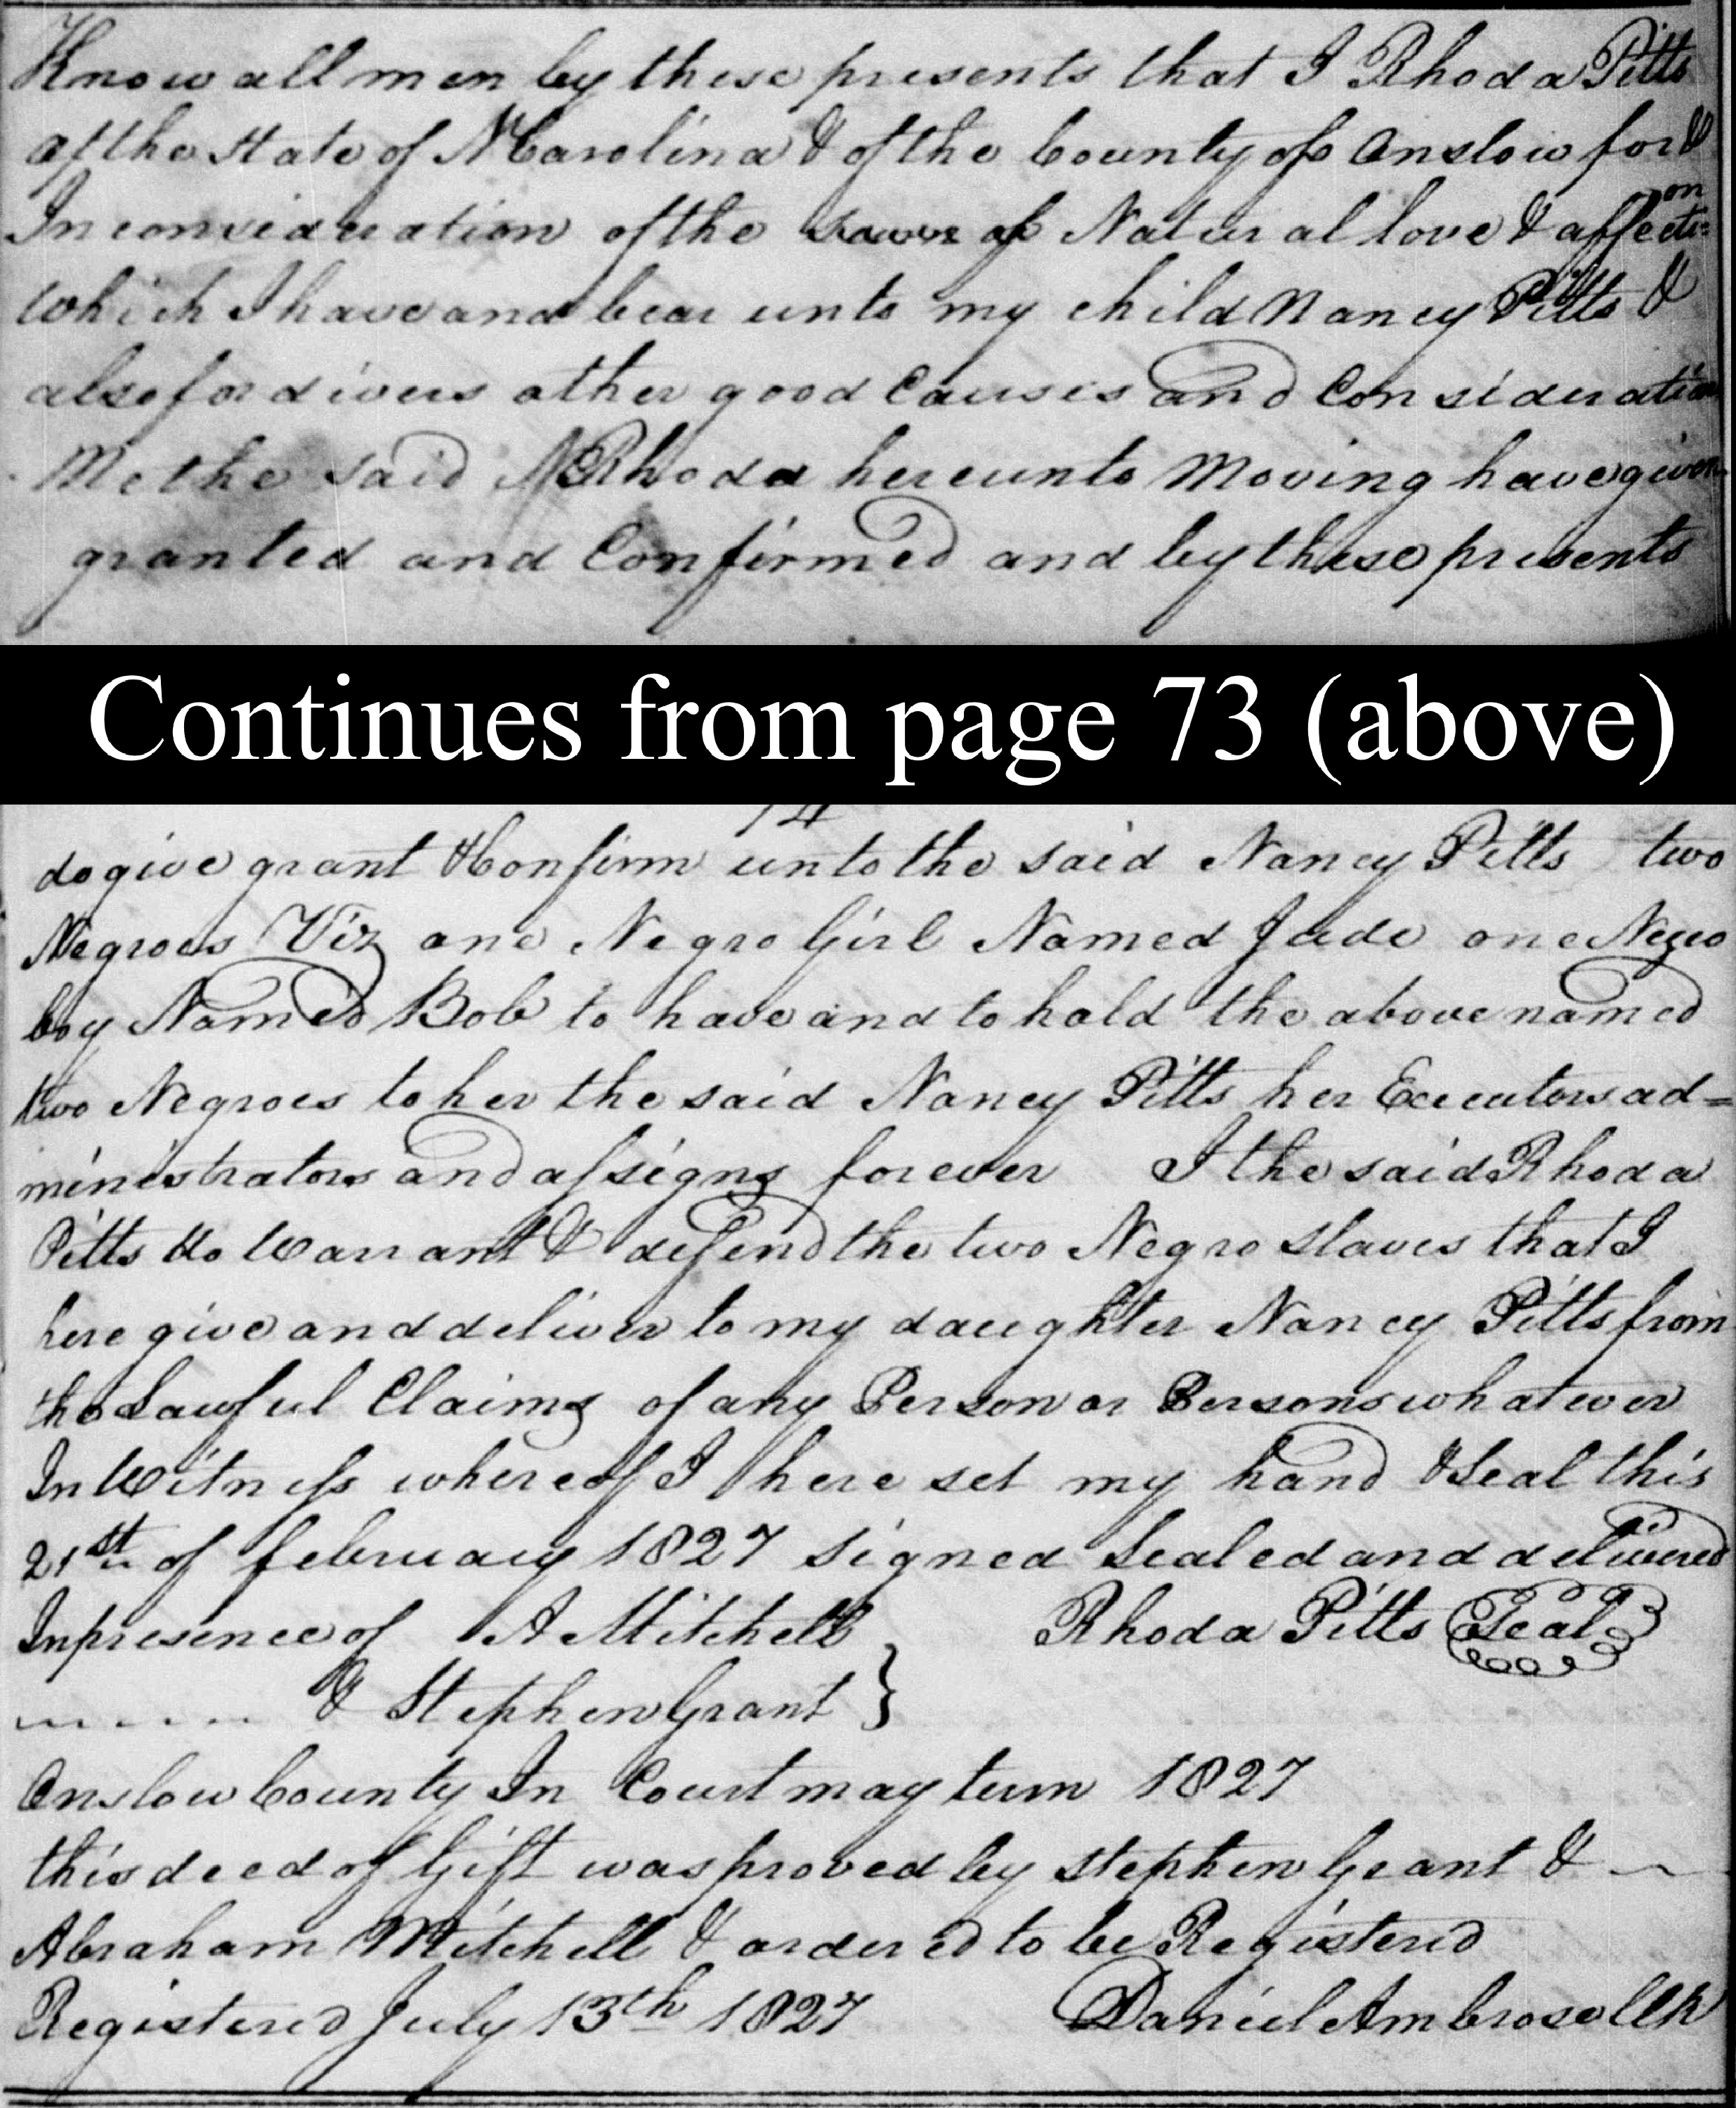 Know all men by these presents that I Rhoda Pitts
of the State of N Carolina & of the County of Onslow for &
In consideration of the of Natural love & affecti=on
which I have and bear unto my child Nancy Pitts &
also for divers other good Causes and Consideration
Me the said Rhoda hereunto Moving have given
granted and Confirmed and by these presents
Continues from page 73 (above)
74
do give grant & Confirm unto the said Nancy Pitts two
Negroes Viz one Negro Girl Named Jude one Negro
boy Named Bob to have and to hold the above named
two Negroes to her the said Nancy Pitts her Executors ad=
ministrators and assigns forever I the said Rhoda
Pitts do Warrant & defend the two Negro slaves that I
here give and deliver to my daughter Nancy Pitts from
the Lawful Claims of any Person or Persons whatever
In Witness whereof I here set my hand & Seal this
21st of february 1827 signed Sealed and delivered
In presence of A Mitchell Rhoda Pitts Seal
& Stephen Grant }
Onslow County In Court may term 1827
this deed of Gift was proved by Stephen Grant &
Abraham Mitchell & ordered to be Registered
Registered July 13th 1827 Daniel Ambrose Clk